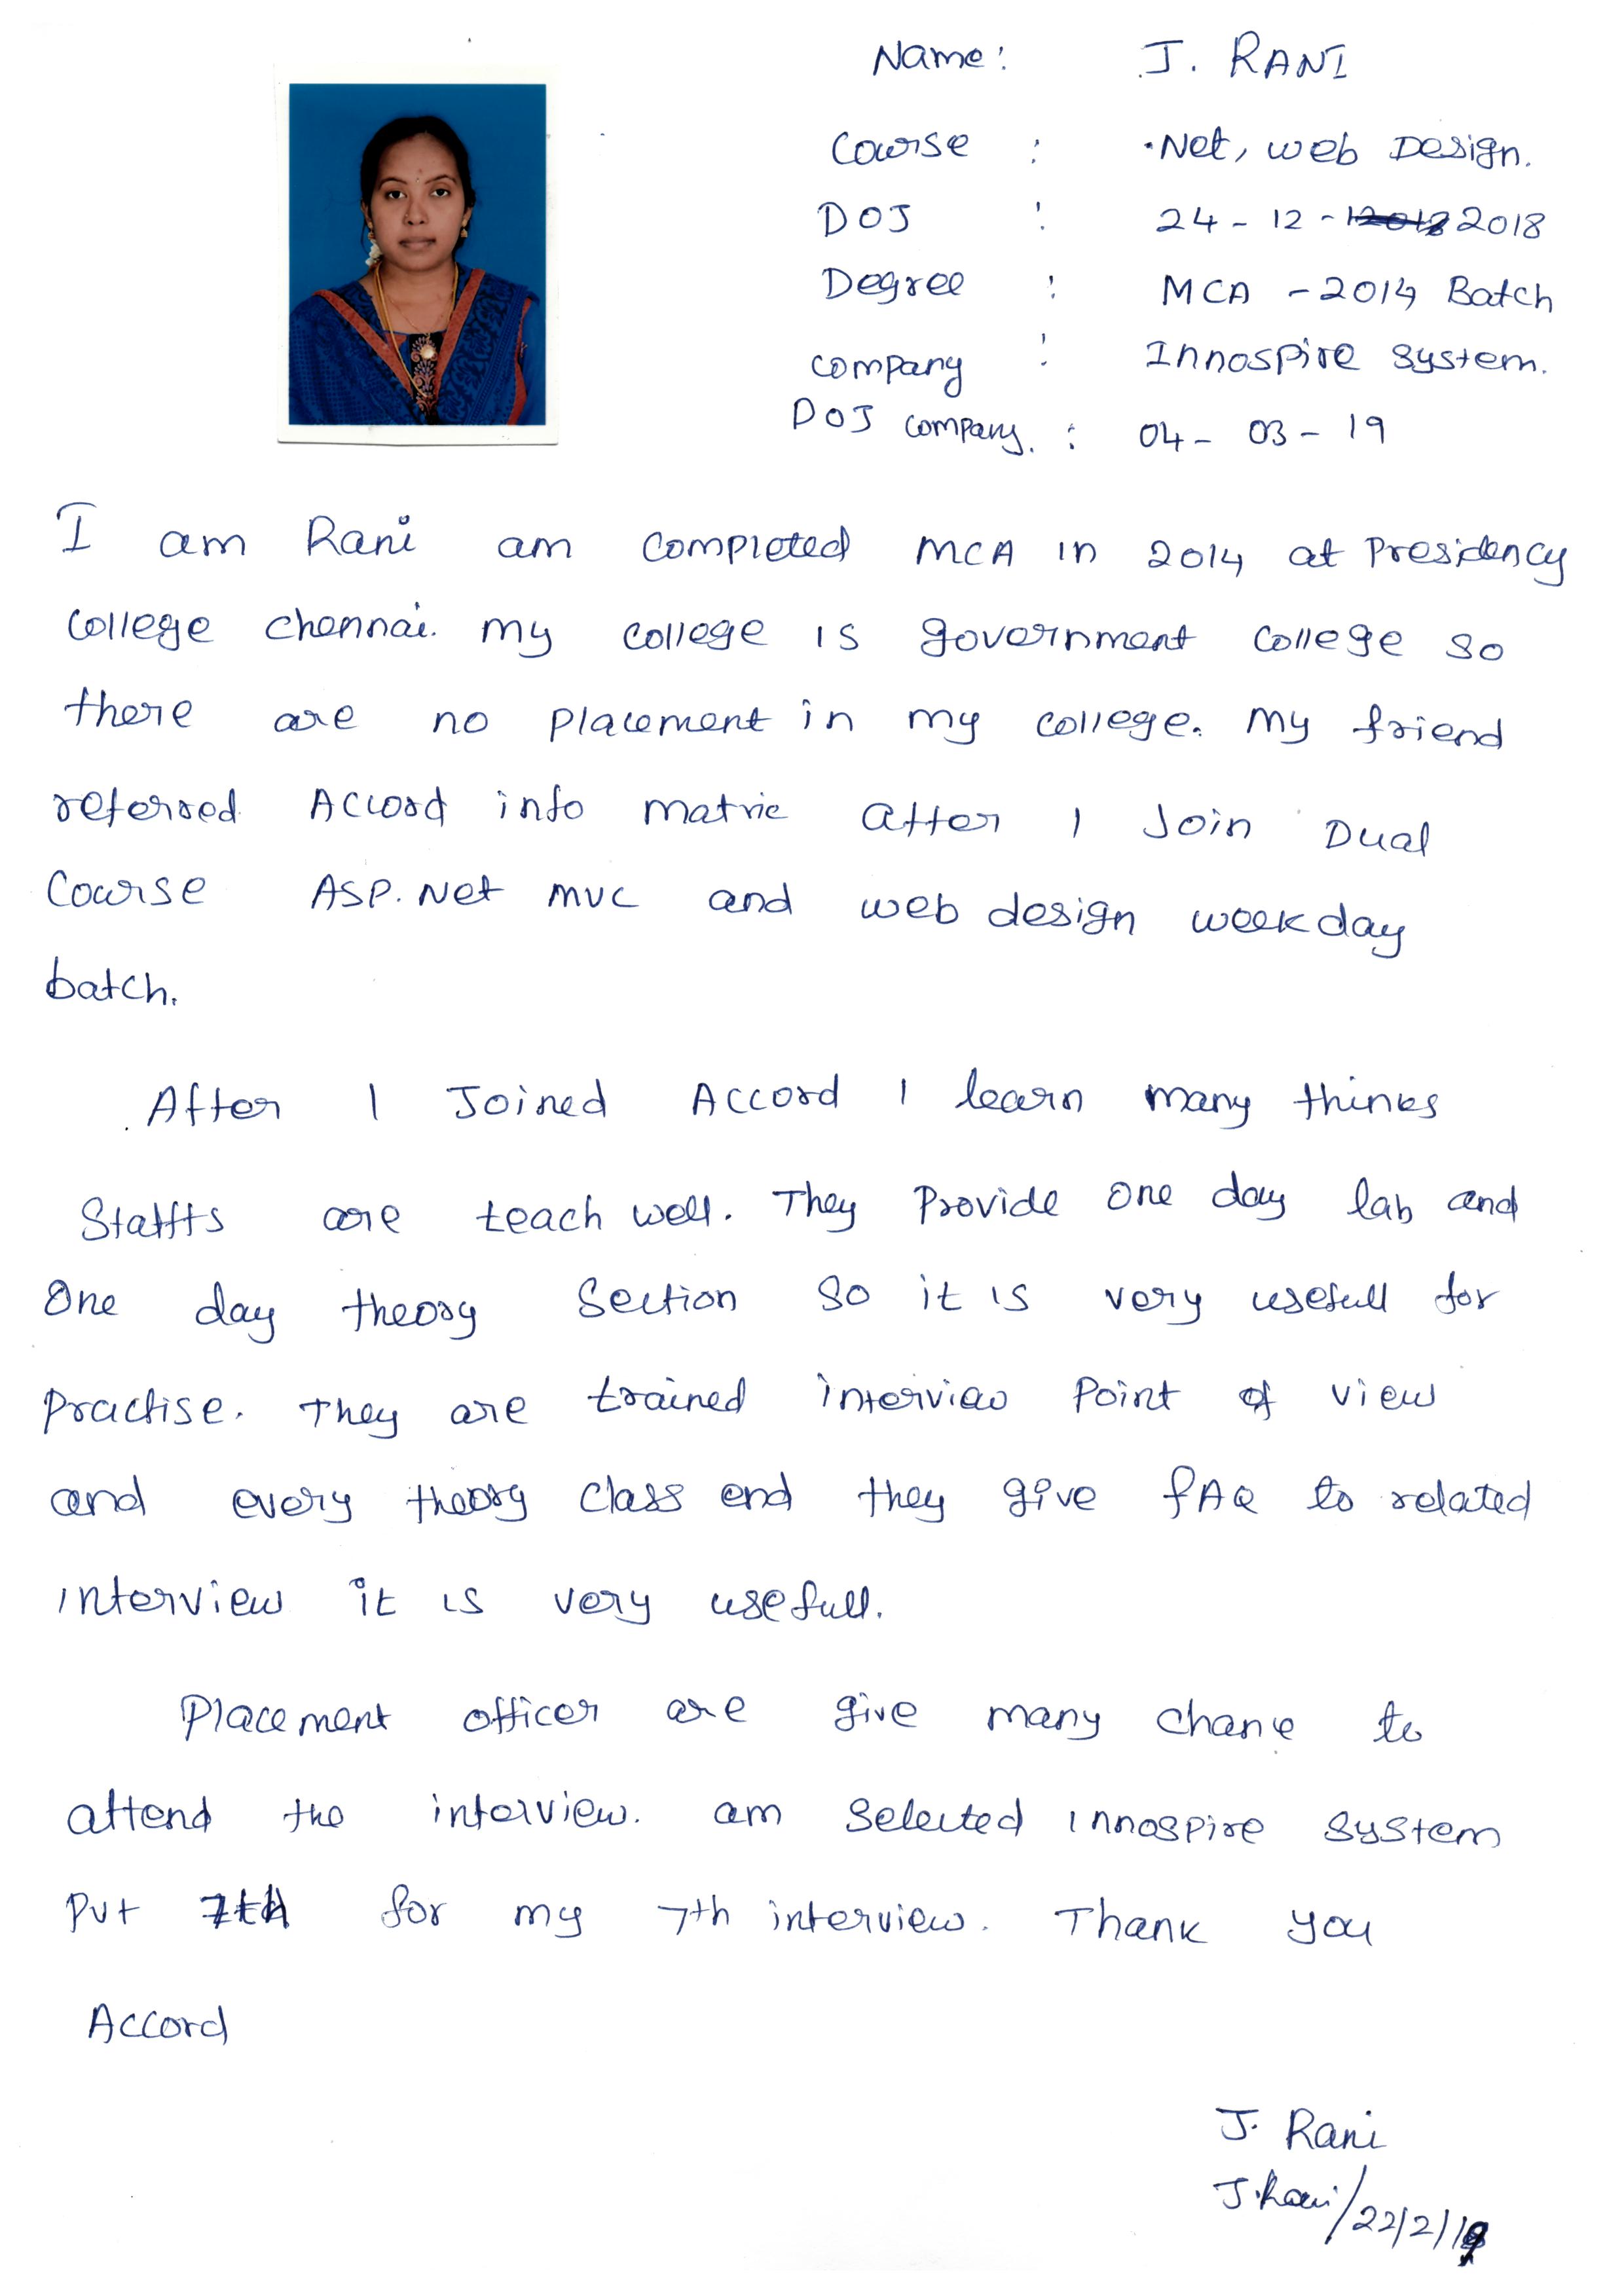 Name: J. RANI
Course : .Net, web Design.
DOJ : 24 - 12 - 2018
Degree : MCA - 2014 Batch
company : Innospire system.
DOJ company. : 04 - 03 - 19
I am Rani am completed MCA in 2014 at Presidency
college chennai. my college is government college so
there are no placement in my college. my friend
referred Accord info matric after I Join Dual
Course ASP.Net MVC and web design week day
batch.
After I Joined Accord I learn many thinks
Staffts are teach well. They Provide one day lab and
One day theory Section So it is very usefull for
Practise. They are trained interview Point of view
and every theory class end they give FAQ to related
interview it is very usefull.
Placement officer are give many chance to
attend the interview. am Selected innospire system
Put for my 7th interview. Thank you
Accord
J. Rani
J.Rani/22/2/19